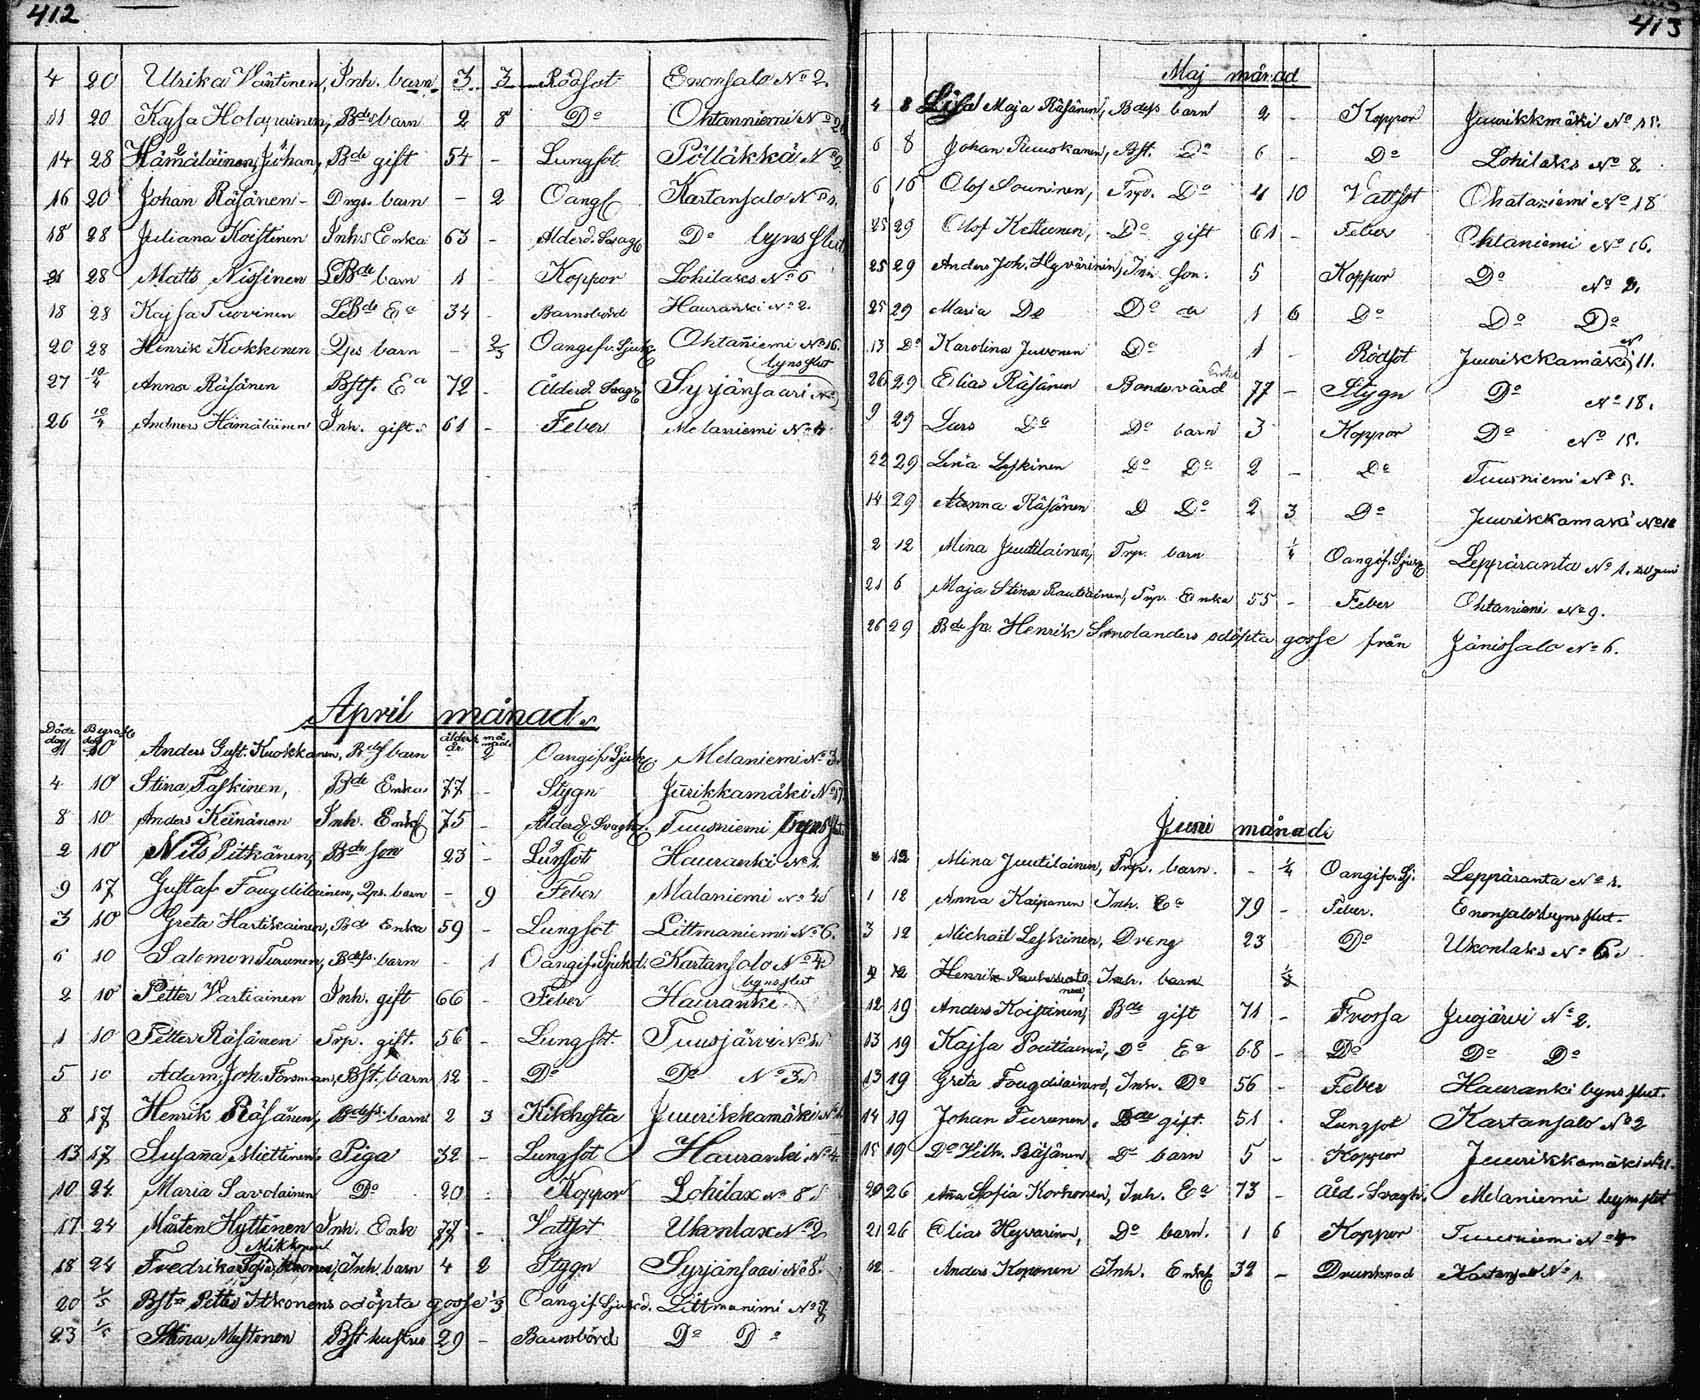 412
4 20 Ulrika Väntinen, Inh. barn 3 3 Rödsot Enonsalo No 2.
11 20 Kajsa Holopainen, Bde barn 2 8 Do Ohtanniemi No 2
14 28 Hämäläinen, Johan, Bde gift 54 - Lungsot Pölläkkä No 2.
16 20 Johan Räsänen - Drgs. barn - 2 Oang Kartansalo No
18 28 Juliana Koistinen Inhs Enka 63 - Ålderd. Svag Do byns slut
21 28 Matts Nissinen LBde barn 1 Koppor Lohilaks No 6
18 28 Kajsa Tuovinen LBde Ea 34 - Barnsbörd Hauranki No 2.
20 28 Henrik Kokkonen Tps barn - 2/3 Oangifv. Sjukd Ohtaniemi No 16.
27 10/4 Anna Räsänen Bsts. Ea 72 - Ålderd. Svagh byns slut Syrjänsaari No 2
26 10/4 Andners Hämäläinen Inh. gift. 61 - Feber Melaniemi No 4
April månad.
Döde dag Begrafne dag ålder år månader
10 Anders Gust. Kuokkanen, Bds barn 2 Oangifv Sjukd. Melaniemi No 3.
4 10 Stina Taskinen, Bde Enka 77 - Stygn Jurikkamäki No 17
8 10 Anders Keinänen Inh. Enkl 75 - Ålderd. Svagh. Tuusniemi byns slut
2 10 Nils Pitkänen, Bde son 23 - Lungsot Hauranki No 1.
9 17 Gustaf Fougdilainen, Tps. barn - 9 Feber Malaniemi No 4
3 10 Greta Hartikainen, Bde Enka 59 - Lungsot Littmaniemi No 6.
6 10 Salomon Turunen, Bdes. barn - 1 Oangif. Sjukd. Kartansalo No 4.
2 10 Petter Vartiainen Inh. gift 66 - Feber Hauranki byns slut
1 10 Petter Räsänen Trp. gift. 56 - Lungsot. Tuusjärvi No 1.
5 10 Adam Joh. Forsman, Bst. barn 12 - Do Do No 3.
8 17 Henrik Räsänen, Bdes. barn 2 3 Kikhosta Juurikkamäki No
13 17 Susanna Miettinen Piga 32 - Lungsot Hauranki No 4.
10 24 Maria Savolainen Do 20 - Koppor Lohilax No 8.
17 24 Mårten Hyttinen Inh. Enkl 77 - Vattsot Ukonlax No 2
Mikkonen
18 24 Fredrika Sofia Inh. barn 4 2 Stygn Syrjänsaari No 8.
20 1/5 Bsts Petter Itkonens adopta gosse 3 Oangif. Sjukd. Littmanimi No 7
23 1/5 Stina Mustonen Bst hustru 29 - Barnsbörd Do Do
413
Maj månad
4 8 Lisa Maja Räsänen, Bdes barn 2 - Koppor Juurikkmäki No 15.
6 8 Johan Ruuskanen, Bst. Do 6 - Do Lohilaks No 8.
6 16 Olof Souninen, Trp. Do 4 10 Vattsot Ohataniemi No 18
25 29 Olof Kettunen, Do gift 61 - Feber Ohtaniemi No 16.
25 29 Anders Joh. Hyvärinin, Inh son. 5 Koppor Do No 2.
25 29 Maria Do Do dr 1 6 Do Do Do
13 Do Karolina Juvonen Do 1 - Rödsot Juurikkamäki No 11.
26 29 Elias Räsänen Bondevärd Enkl 77 - Stygn Do No 18.
9 29 Lars Do Do barn 3 Koppor Do No 15.
22 29 Lena Leskinen Do Do 2 - Do Tuusniemi No 5.
14 29 Hanna Räsänen D Do 2 3 Do Juurikkamäki No 18
2 12 Mina Juutilainen, Trp. barn 1/4 Oangif. Sjukd Leppäranta No 1.
21 6 Maja Stina Rautiainen, Trp. Enka 55 - Feber Ohtaniemi No 9.
26 29 Bde sn. Henrik Smolanders adopta gosse från Jänissalo No 6.
Juni månad
12 Mina Juutilainen, Trp. barn. - 1/4 Oangifv. Sj. Leppäranta No 1.
1 12 Anna Kaipanen Inh. Ea 79 - Feber. Enonsalo byns slut.
3 12 Michaël Leskinen, Dreng 23 Do Ukonlaks No 6.
9 12 Henrik Inh. barn 1/2
12 19 Anders Koistinen, Bde gift 71 - Frossa Juojärvi No 2.
13 19 Kajsa Poutiainen, Do Ea 68 - Do Do Do
13 19 Greta Fougdilainen, Inh. Do 56 - Feber Hauranki byns slut.
14 19 Johan Turunen, Bde gift. 51 . Lungsot Kartansalo No 2
15 19 Do Vilh. Räsänen Do barn 5 - Koppor Juurikkamäki No 11.
20 26 Anna Sofia Korhonen, Inh. Ea 73 - Åld. Svagh. Melaniemi byns slut
21 26 Elias Hyvarinen, Do barn. 1 6 Koppor Tuusniemi No 4
12 - Anders Koponen Inh. Enkl 32 - Drunknad Kartansalo No 1.